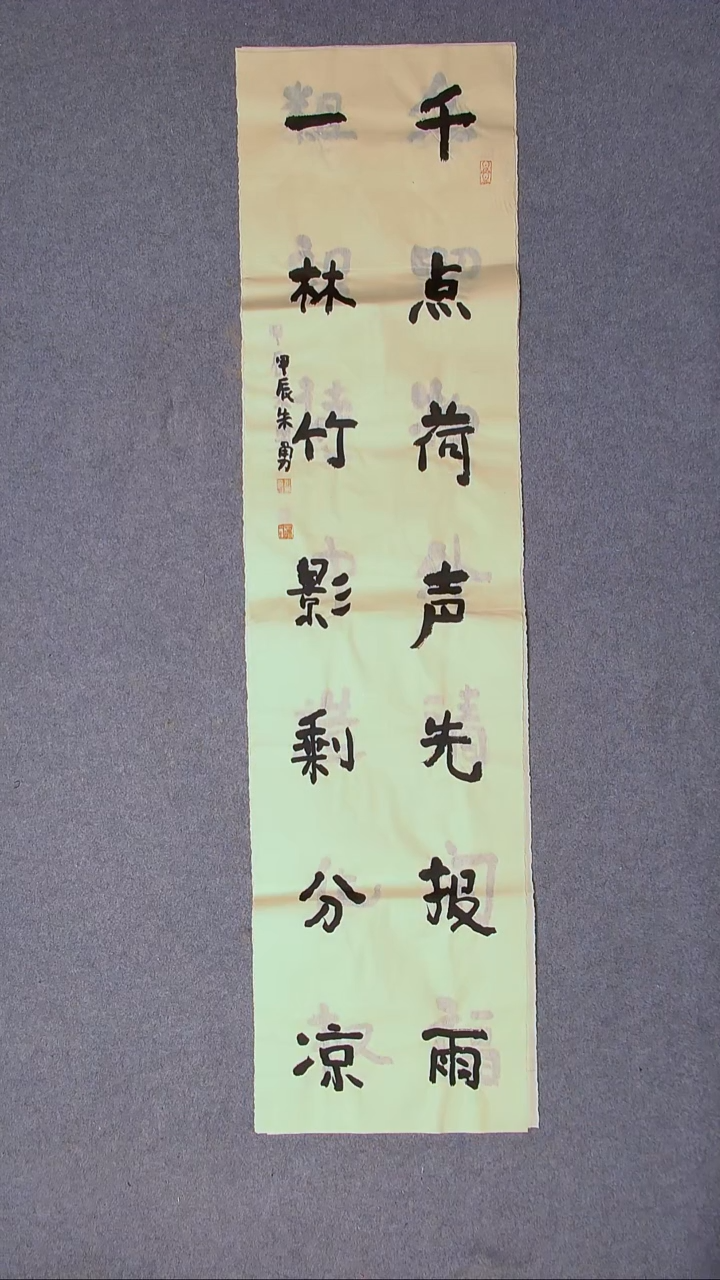 千点荷声先报雨
一林竹影剩分凉
甲辰朱勇